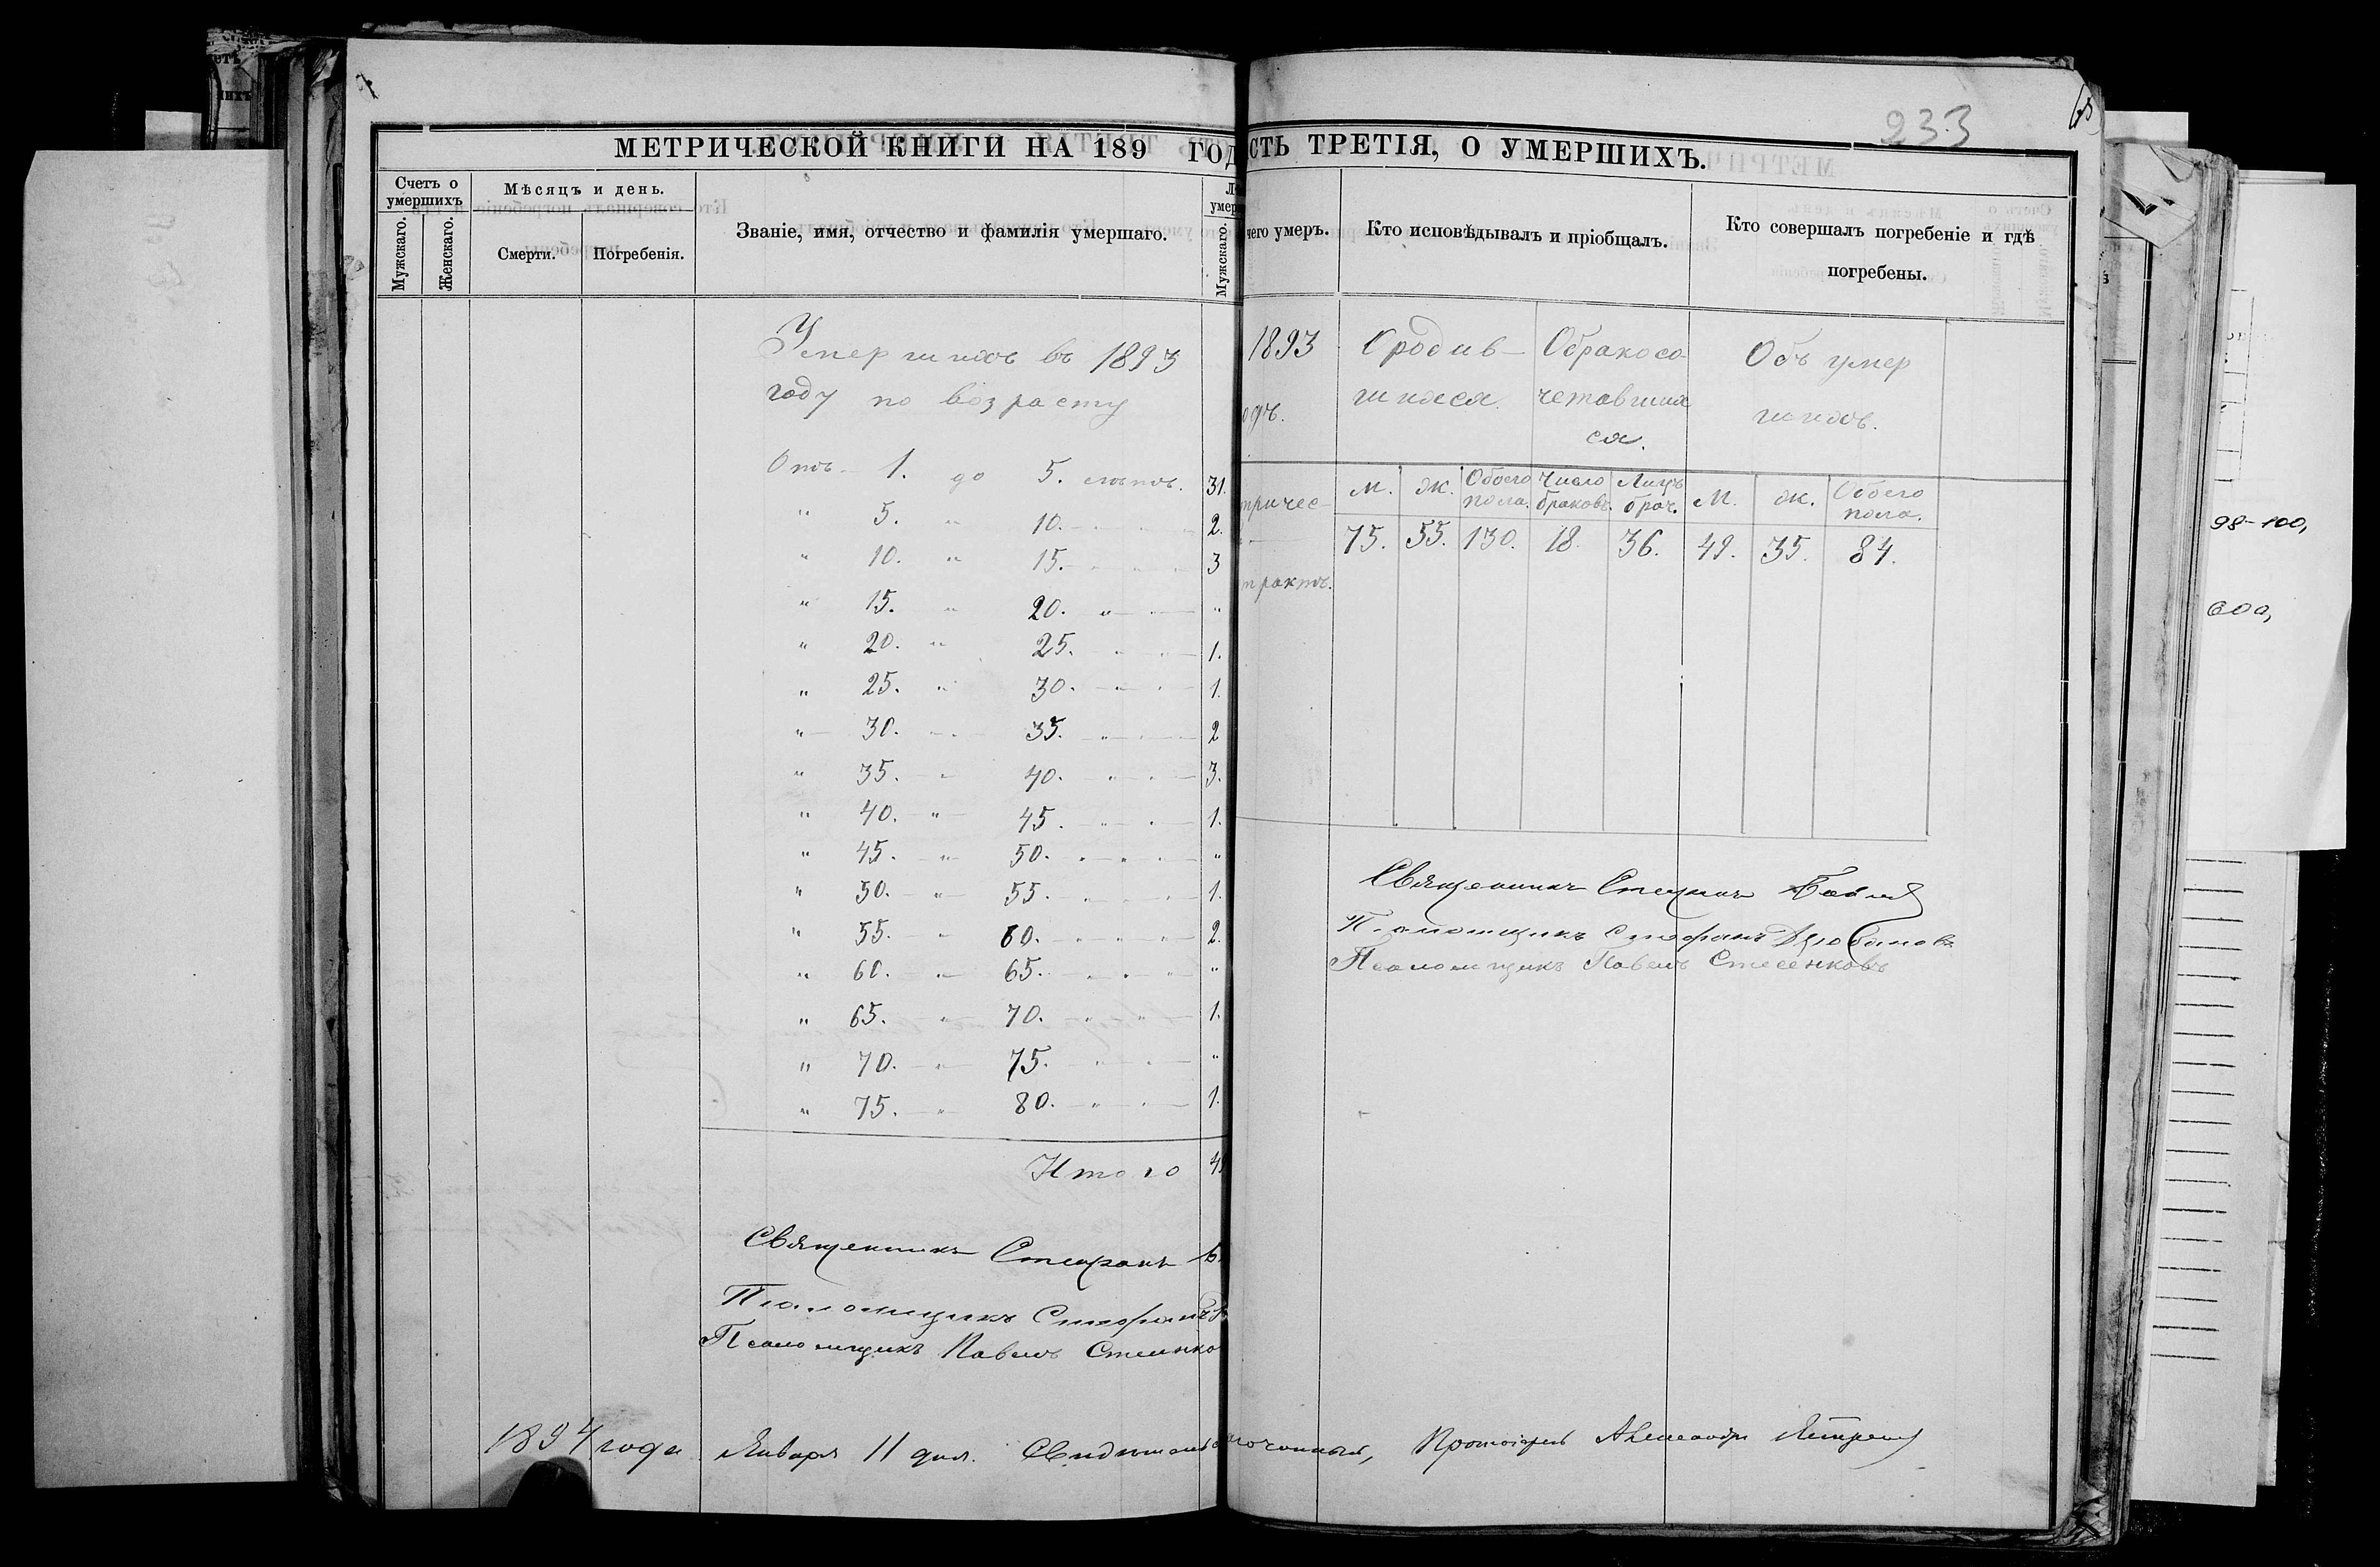 233
МЕТРИЧЕСКОЙ КНИГИ НА 189 ГОД
Счетъ о умершихъ
Мужскаго.
Женскаго.
Мѣсяцъ и день.
Смерти.
Погребенія.
Званіе, имя, отчество и фамилія умершаго.
умер
Мужскаго.
Умершихъ въ 1893
году по возрасту
Отъ 1. до 5. лѣтъ. 31.
" 5. " 10. 2.
" 10. " 15. 3
" 15. " 20. "
" 20. " 25. 1.
" 25. " 30. 1.
" 30. " 35. 2
" 35. " 40. 3.
" 40. " 45. 1.
" 45. " 50. "
" 50. " 55. 1.
" 55. " 60. 2.
" 60. " 65. "
" 65. " 70. 1.
" 70. " 75. "
" 75. " 80. 1.
Итого 4
Священникъ Стефанъ Б
Псаломщикъ Стефанъ
Псаломщикъ Павелъ Стесенко
1894 года Января 11 дня.
СТЬ ТРЕТІЯ, О УМЕРШИХЪ.
чего умеръ.
Кто исповѣдывалъ и пріобщалъ.
Кто совершалъ погребеніе и гдѣ
погребены.
1893
одъ.
тричес-
трактъ.
О родив-
шихся.
О бракосо-
четавших
ся.
Объ умер
шихъ.
М. Ж. Обоего пола. Число браковъ. Лицъ брач. М. Ж. Обоего пола.
75. 55. 130. 18. 36. 49. 35. 84.
Священникъ Стефанъ
Псаломщикъ Стефанъ
Псаломщикъ Павелъ Стесенковъ
Протоіерей Александръ
98-100,
600,